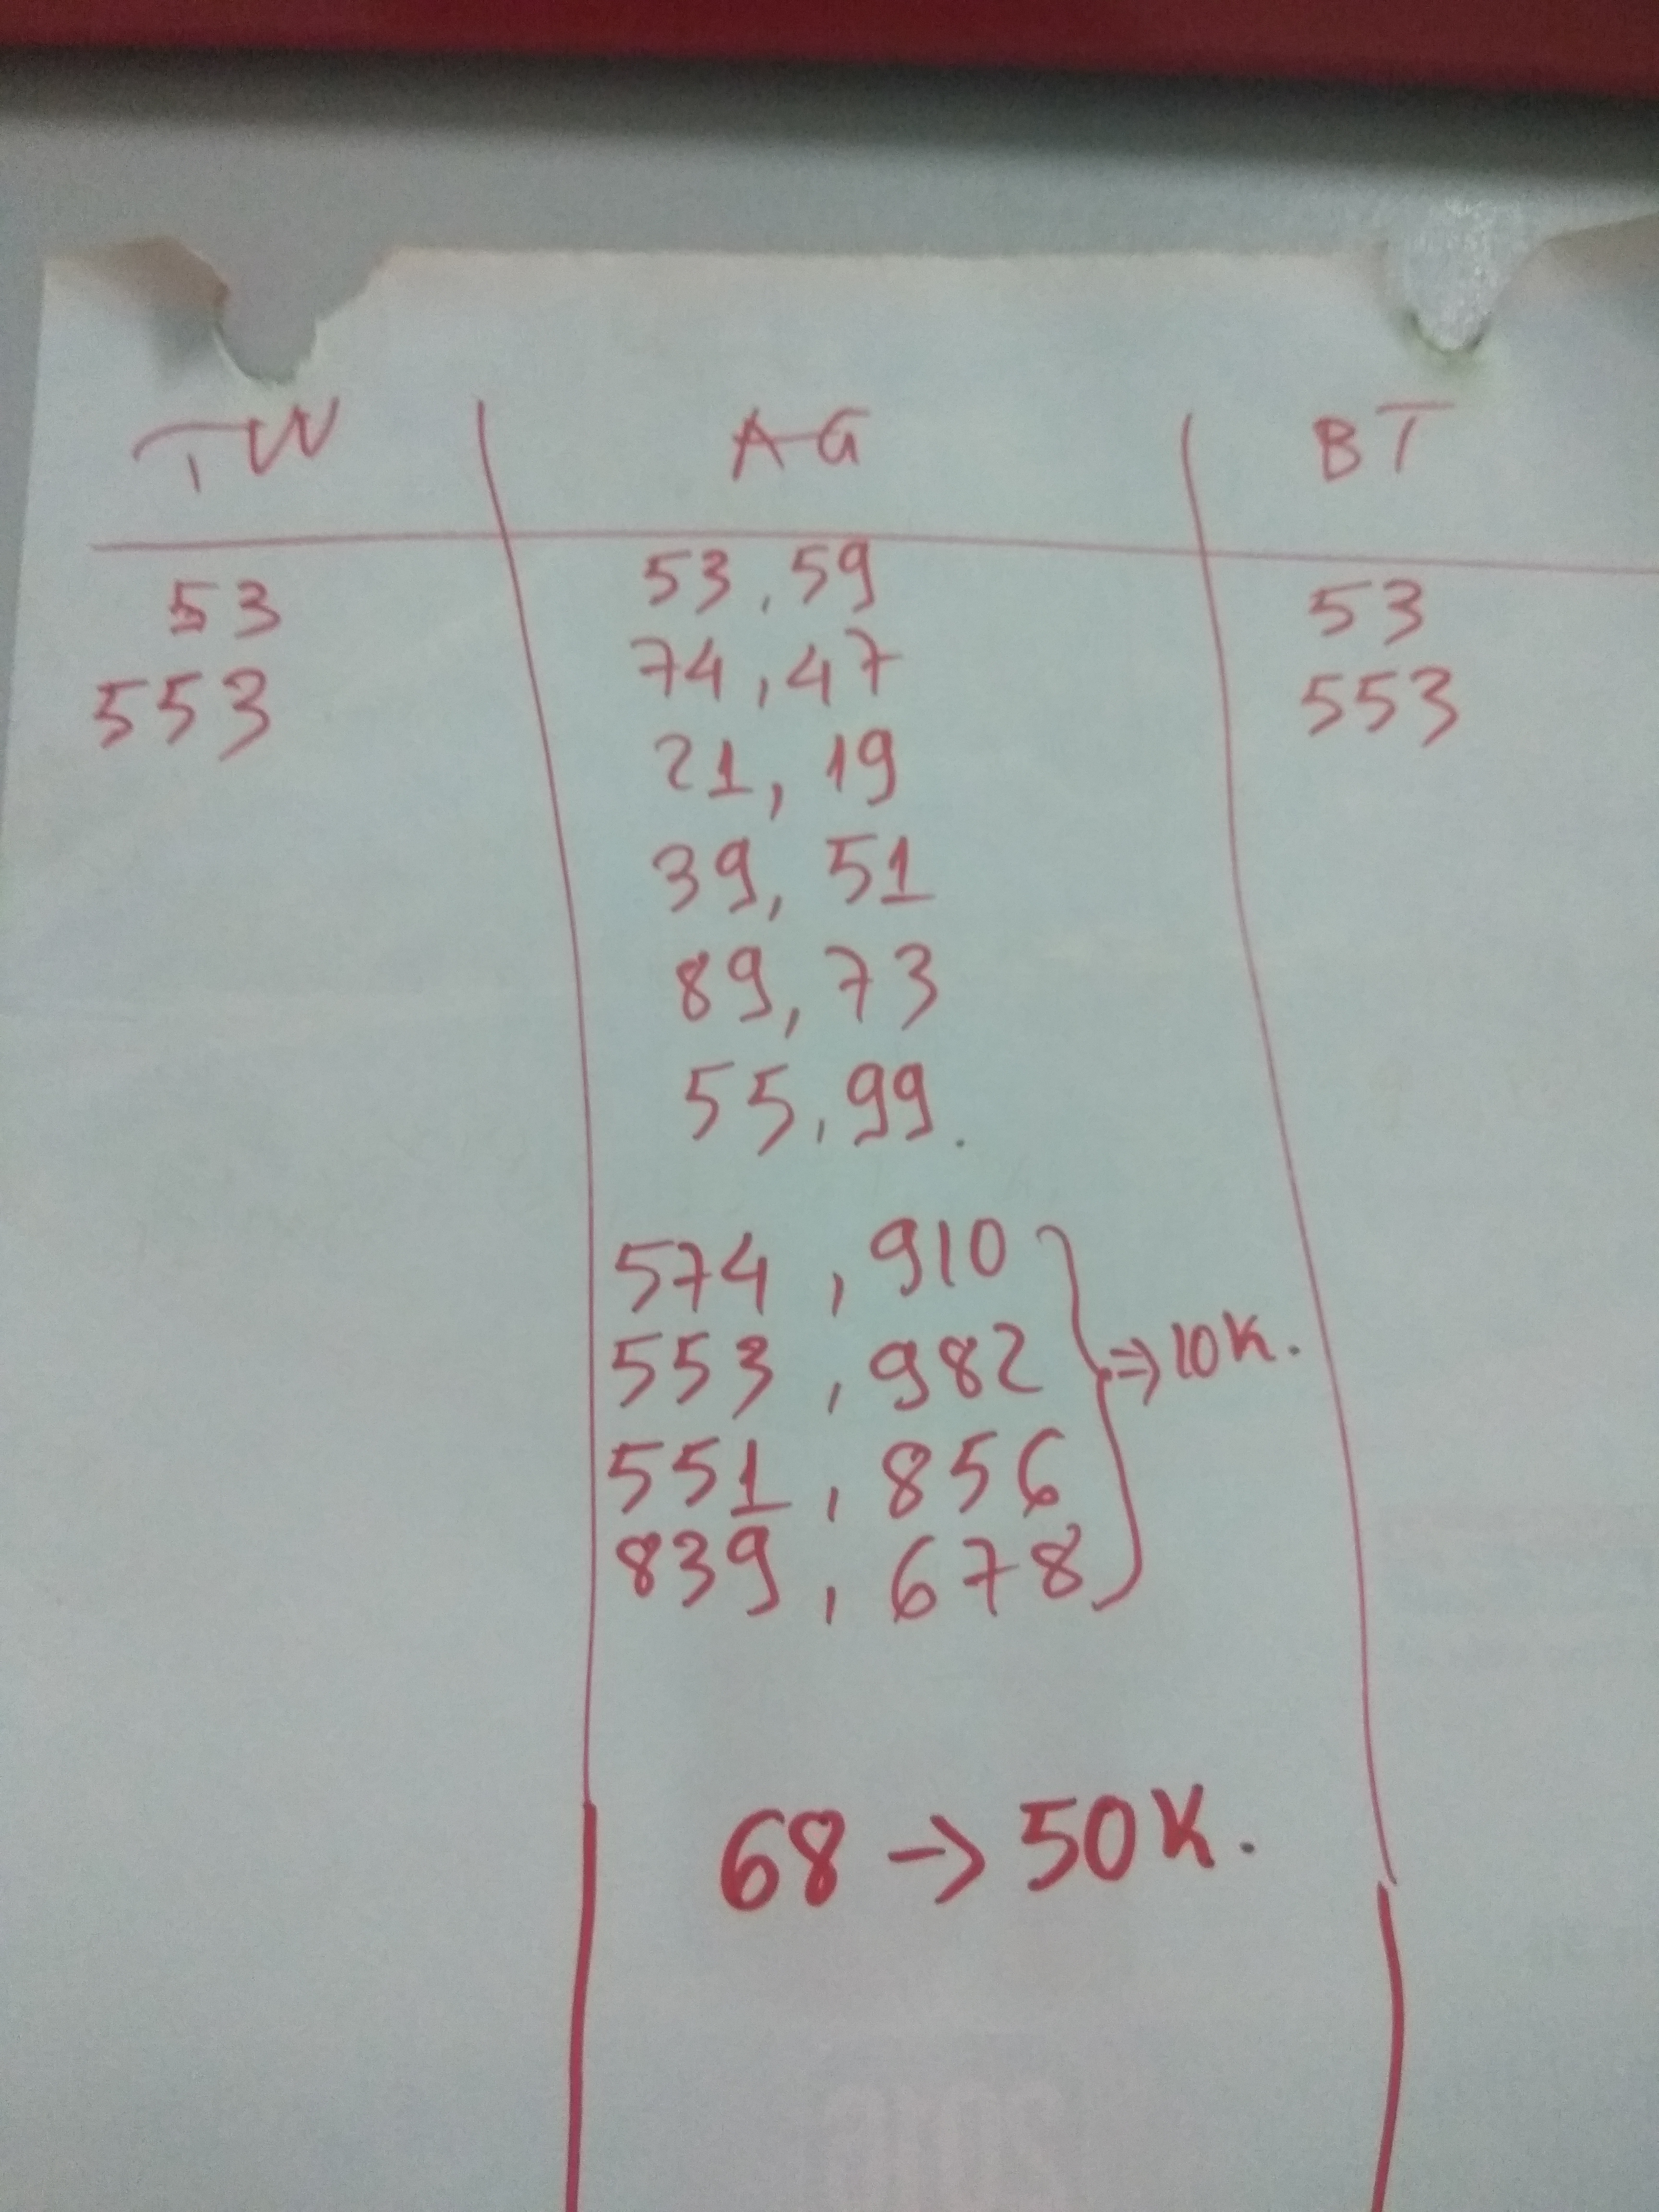 TW AG BT
53 53, 59 53
553 74, 47 553
21, 19
39, 51
89, 73
55, 99.
574, 910
553, 982 ⇒ 10K.
551, 856
839, 678
68 → 50K.